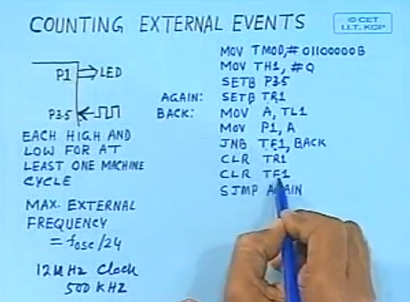 COUNTING EXTERNAL EVENTS
© CET
I.I.T. KGP
P1 LED
P3.5
EACH HIGH AND
LOW FOR AT
LEAST ONE MACHINE
CYCLE
MAX. EXTERNAL
FREQUENCY
= fosc/24
12 MHz Clock
500 KHz
MOV TMOD,# 01100000B
MOV TH1, #0
SETB P3.5
AGAIN: SETB TR1
BACK: MOV A, TL1
MOV P1, A
JNB TF1, BACK
CLR TR1
CLR TF1
SJMP AGAIN